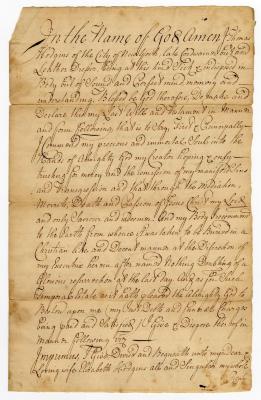 In the Name of God Amen I Thomas
Hodgins of the City of New York
being at this time Sick & indisposed in
Body but of Sound and Perfect mind memory and
understanding Blessed be God therefore Do make and
Declare this my Last Will and Testament in Manner
and form following that is to Say First & Principally
I Commend my precious and immortal Soul into the
Hands of Almighty God my Creator Hoping &
trusting for mercy and the remission of my manifold Sins
and Transgressions and that through the Mediation
Merits Death and Passion of Jesus Christ my Lord
and only Saviour and redeemer And my Body I recommend
to the Earth from whence it was taken to be Buried in a
Christian like and Decent manner at the Discretion of
my Executrix herein after named Nothing Doubting of a
Glorious resurrection at the last Day And as for Such
temporal Estate as it hath pleased the Almighty God to
Bestow upon me (my Just Debts and funeral Charges
being paid and Satisfied) I Give & Dispose thereof in
Manner following Viz
Imprimis, I Give Devise and Bequeath unto my dear &
Loving wife Elizabeth Hodgins all and Singular my